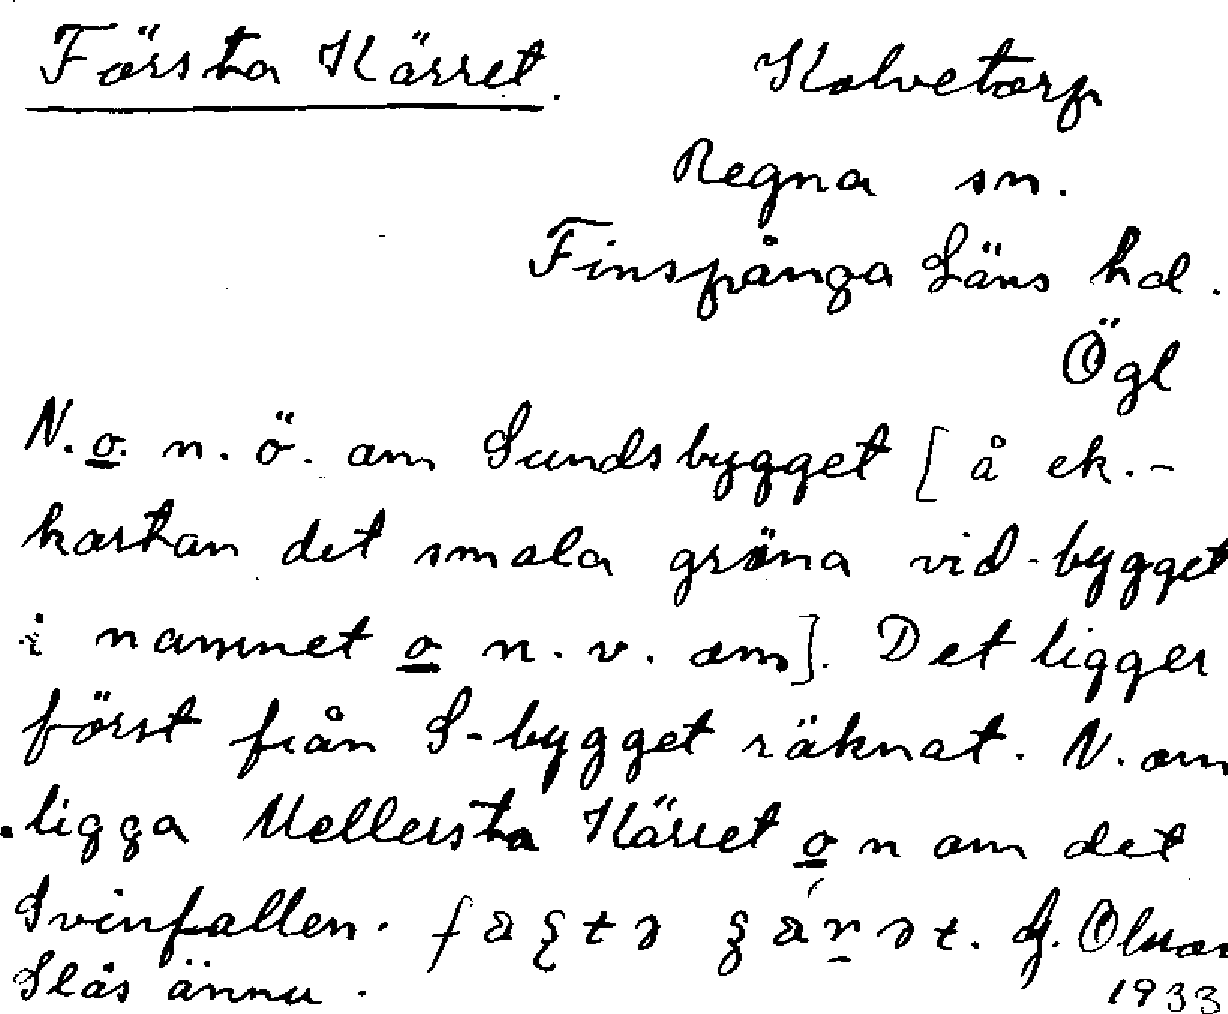 Första Kärret. Kalvetorp
Regna sn.
Finspånga Läns hd.
Ögl
N. o. n. ö. om Sundsbygget [å ek.-
kartan det smala gröna vid -bygget
i namnet o n. v. om]. Det ligger
först från S-bygget räknat. N. om
ligga Mellersta Kärret o n om det
Svinfallen.
Slås ännu. 1933